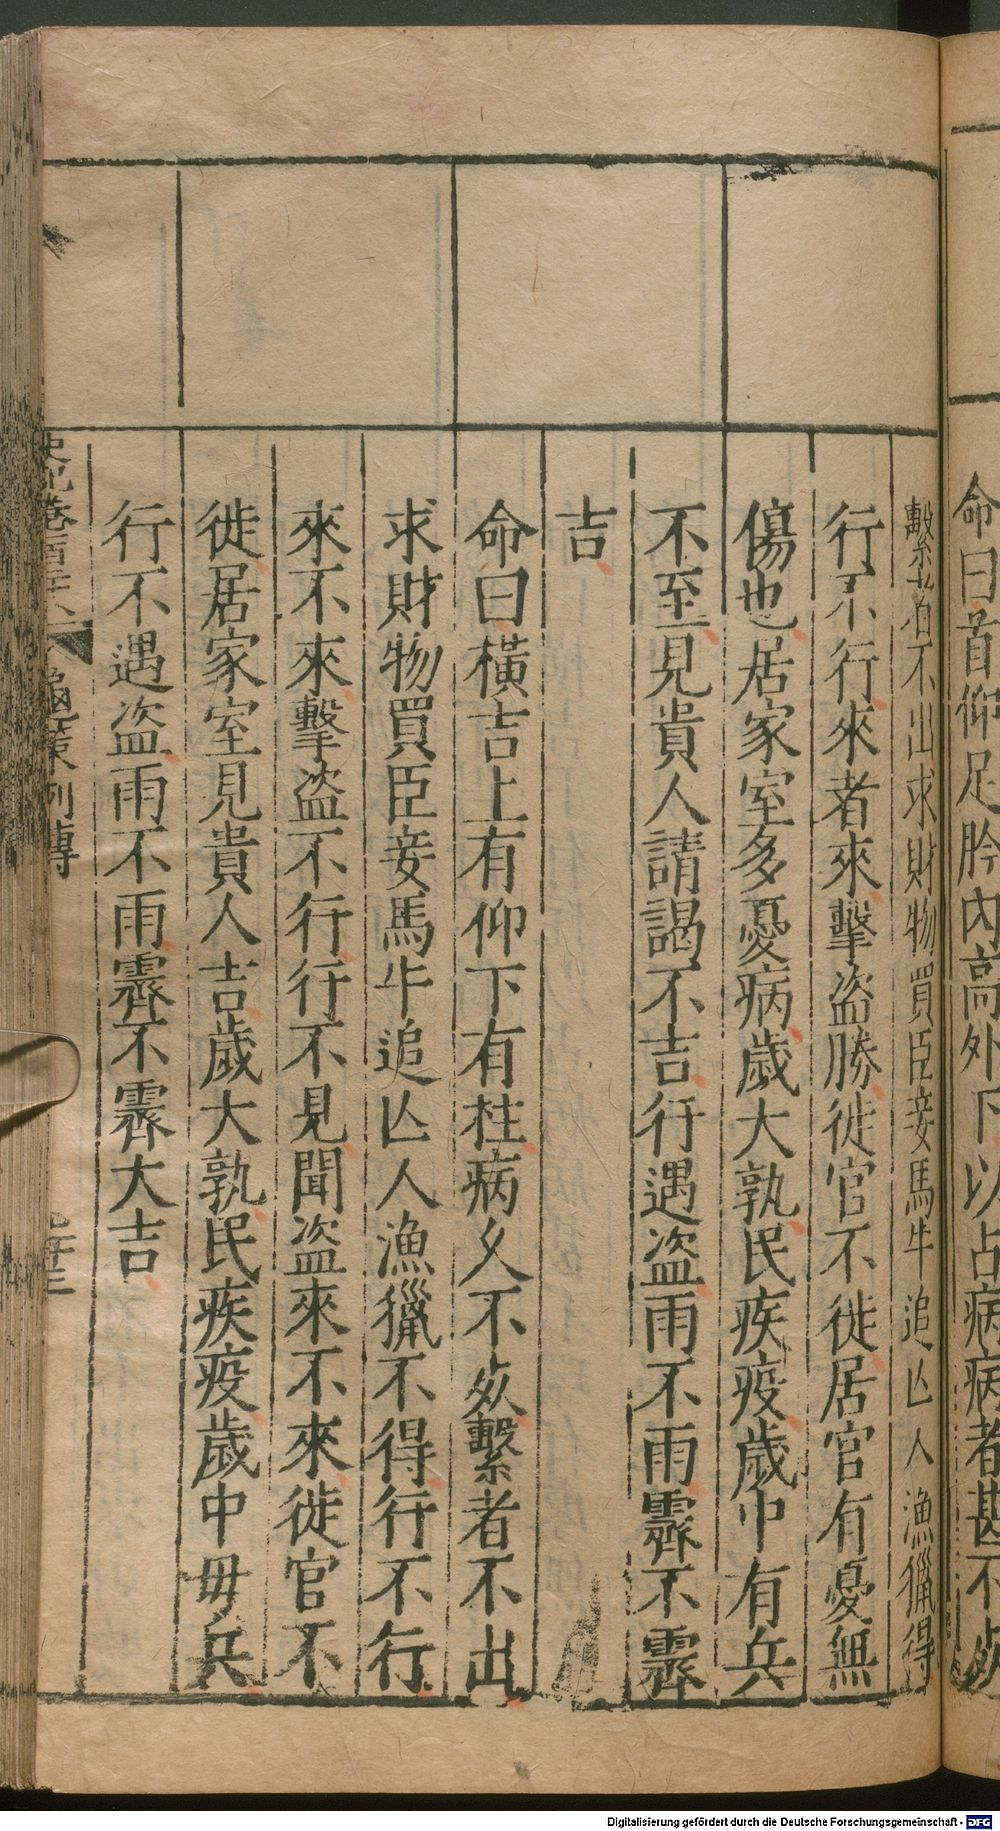 命曰首仰足肣內高外下以占病病者甚不死
繫者不出求財物買臣妾馬牛追亾人漁獵得
行不行來者來擊盜勝徙官不徙居官有憂無
傷也居家室多憂病歲大孰民疾疫歲中有兵
不至見貴人請謁不吉行遇盜雨不雨霽不霽
吉
命曰橫吉上有仰下有柱病乆不死繫者不出
求財物買臣妾馬牛追亾人漁獵不得行不行
來不來擊盜不行行不見聞盜來不來徙官不
徙居家室見貴人吉歲大孰民疾疫歲中毋兵
行不遇盜雨不雨霽不霽大吉
史記卷百二十八 龜策列傳
Digitalisierung gefördert durch die Deutsche Forschungsgemeinschaft - DFG